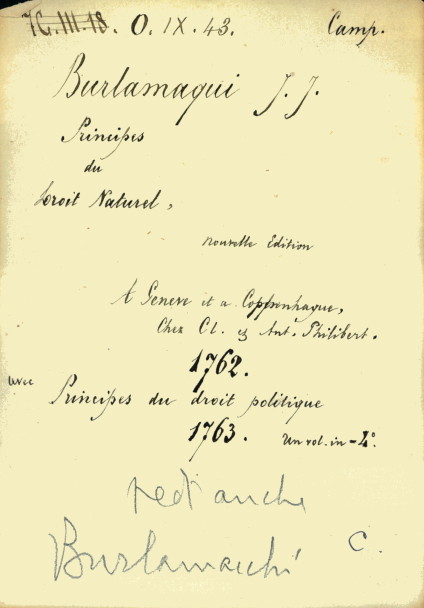 7G.III.18. O.IX.43. Camp.
Burlamaqui J. J.
Principes
du
Droit Naturel,
nouvelle Edition
A Geneve et a Coppenhague,
Chez Cl. et Ant. Philibert.
1762.
avec
Principes du droit politique
1763. Un vol. in-4°.
anche
Burlamacchi C.